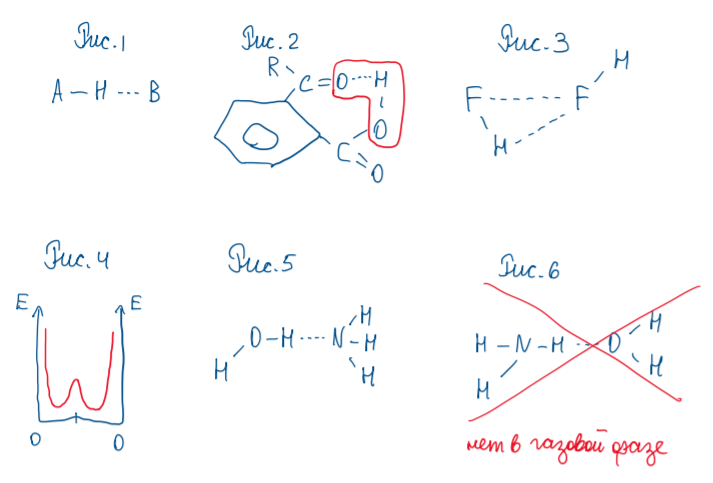 Рис.1
A — H --- B
Рис. 2
R
C = O ···· H
O
C
O
Рис. 3
H
F ------- F
H
Рис. 4
E E
O O
Рис.5
H
O - H ···· N - H
H H
Рис. 6
H - N - H ··· O H
H H
нет в газовой фазе